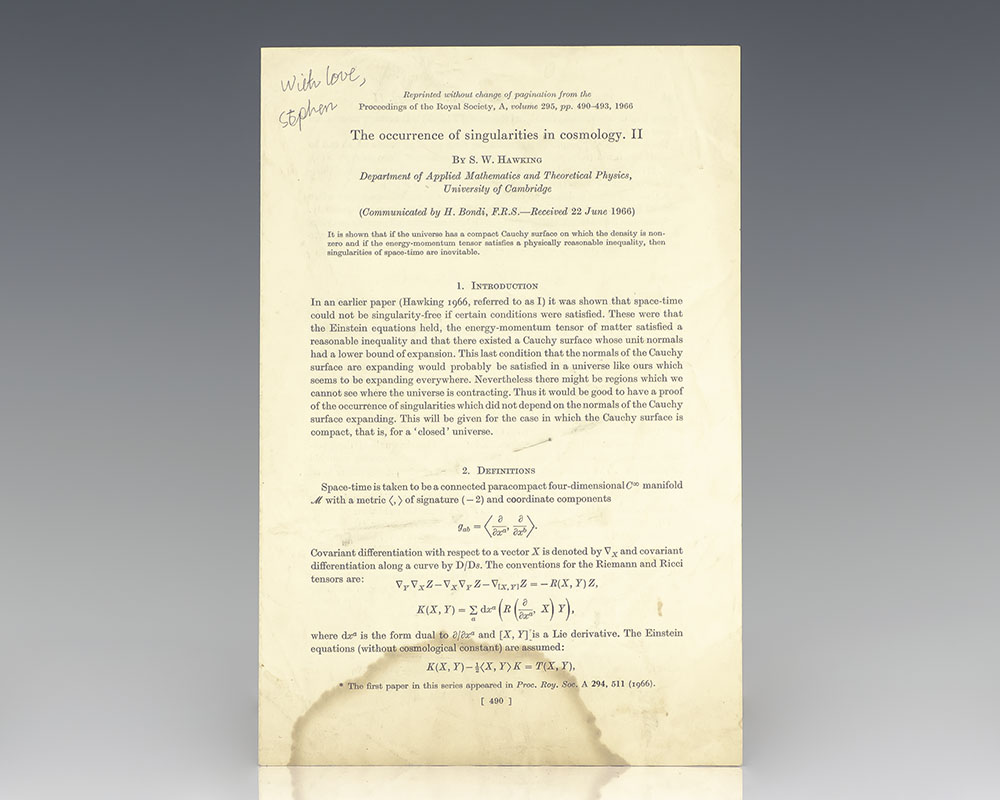 With love,
Stephen
Reprinted without change of pagination from the
Proceedings of the Royal Society, A, volume 295, pp. 490–493, 1966
The occurrence of singularities in cosmology. II
By S. W. Hawking
Department of Applied Mathematics and Theoretical Physics,
University of Cambridge
(Communicated by H. Bondi, F.R.S.—Received 22 June 1966)
It is shown that if the universe has a compact Cauchy surface on which the density is non-
zero and if the energy-momentum tensor satisfies a physically reasonable inequality, then
singularities of space-time are inevitable.
1. Introduction
In an earlier paper (Hawking 1966, referred to as I) it was shown that space-time
could not be singularity-free if certain conditions were satisfied. These were that
the Einstein equations held, the energy-momentum tensor of matter satisfied a
reasonable inequality and that there existed a Cauchy surface whose unit normals
had a lower bound of expansion. This last condition that the normals of the Cauchy
surface are expanding would probably be satisfied in a universe like ours which
seems to be expanding everywhere. Nevertheless there might be regions which we
cannot see where the universe is contracting. Thus it would be good to have a proof
of the occurrence of singularities which did not depend on the normals of the Cauchy
surface expanding. This will be given for the case in which the Cauchy surface is
compact, that is, for a ‘closed’ universe.
2. Definitions
Space-time is taken to be a connected paracompact four-dimensional C∞ manifold
ℳ with a metric ⟨,⟩ of signature (−2) and coordinate components
g_ab = ⟨∂/∂xᵃ, ∂/∂xᵇ⟩.
Covariant differentiation with respect to a vector X is denoted by ∇_X and covariant
differentiation along a curve by D/Ds. The conventions for the Riemann and Ricci
tensors are:
∇_Y ∇_X Z − ∇_X ∇_Y Z − ∇_[X, Y] Z = −R(X, Y) Z,
K(X, Y) = ∑_a dxᵃ (R (∂/∂xᵃ, X) Y),
where dxᵃ is the form dual to ∂/∂xᵃ and [X, Y] is a Lie derivative. The Einstein
equations (without cosmological constant) are assumed:
K(X, Y) − ½⟨X, Y⟩ K = T(X, Y),
* The first paper in this series appeared in Proc. Roy. Soc. A 294, 511 (1966).
[ 490 ]